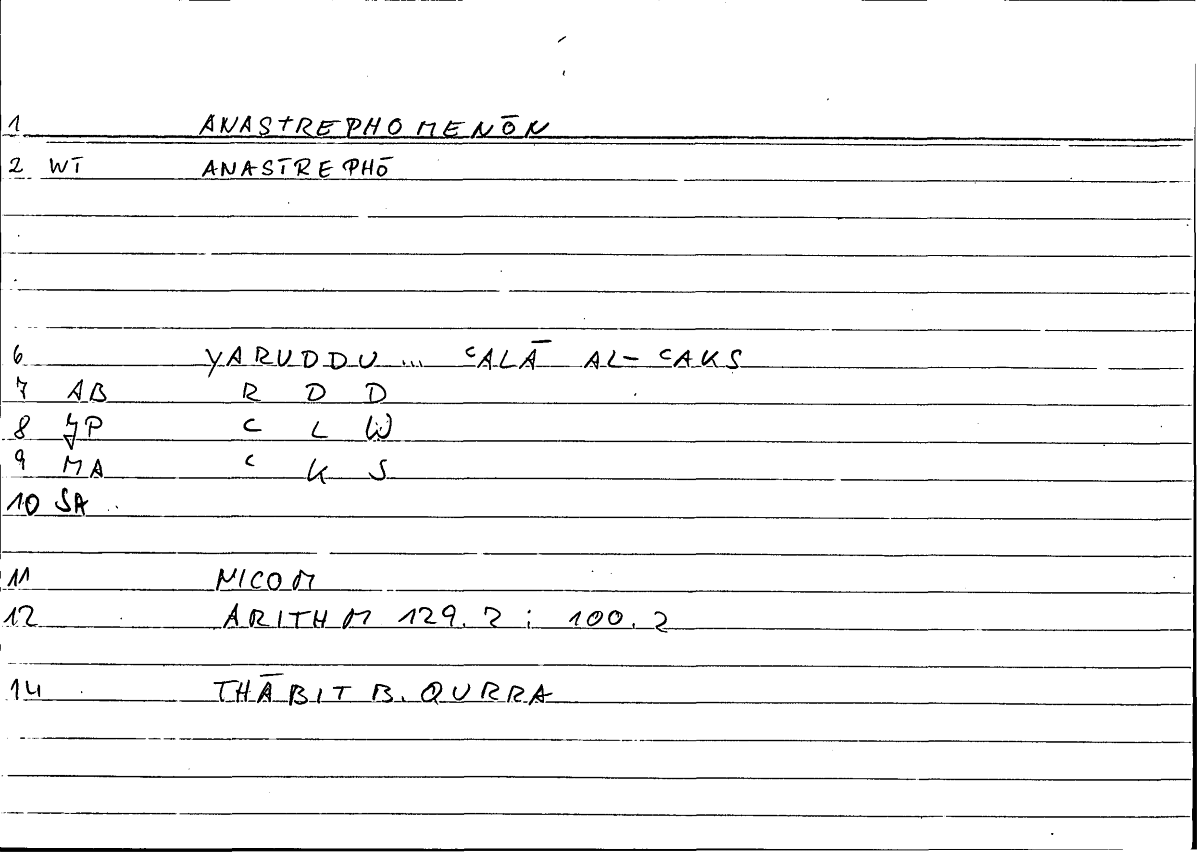 1 ANASTREPHOMENŌN
2 WT ANASTREPHŌ
6 YARUDDU ... ʿALĀ AL-ʿAKS
7 AB R D D
8 JP ʿ L W
9 MA ʿ K S
10 SA
11 NICOM
12 ARITHM 129.2 ; 100.2
14 THĀBIT B. QURRA